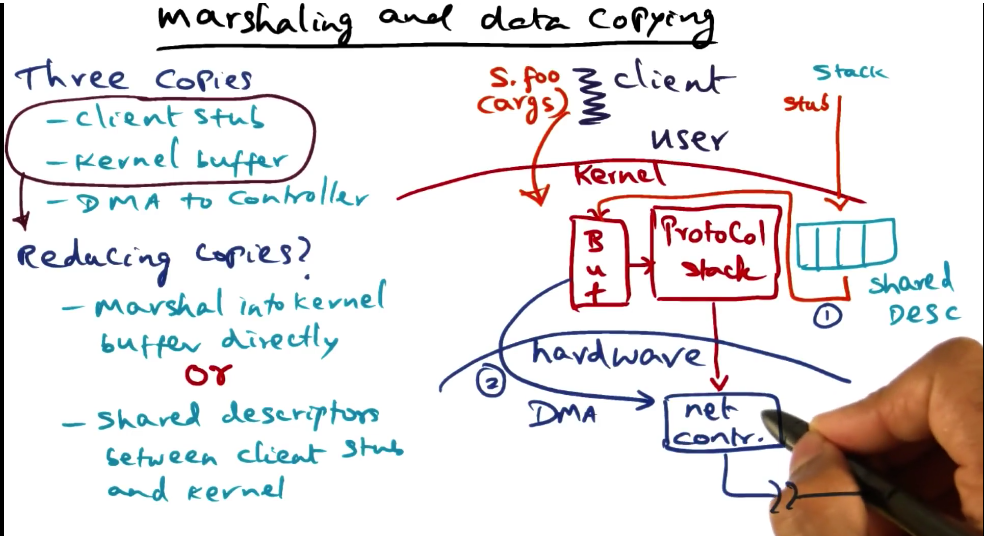 marshaling and data copying
Three Copies
- client stub
- Kernel buffer
- DMA to Controller
Reducing copies?
- Marshal into kernel
buffer directly
Or
- Shared descriptors
between client stub
and kernel
S.foo
(args)
client
user
Kernel
Stack
stub
Buf
Protocol
stack
shared
Desc
1
hardware
2
DMA
net
contr.